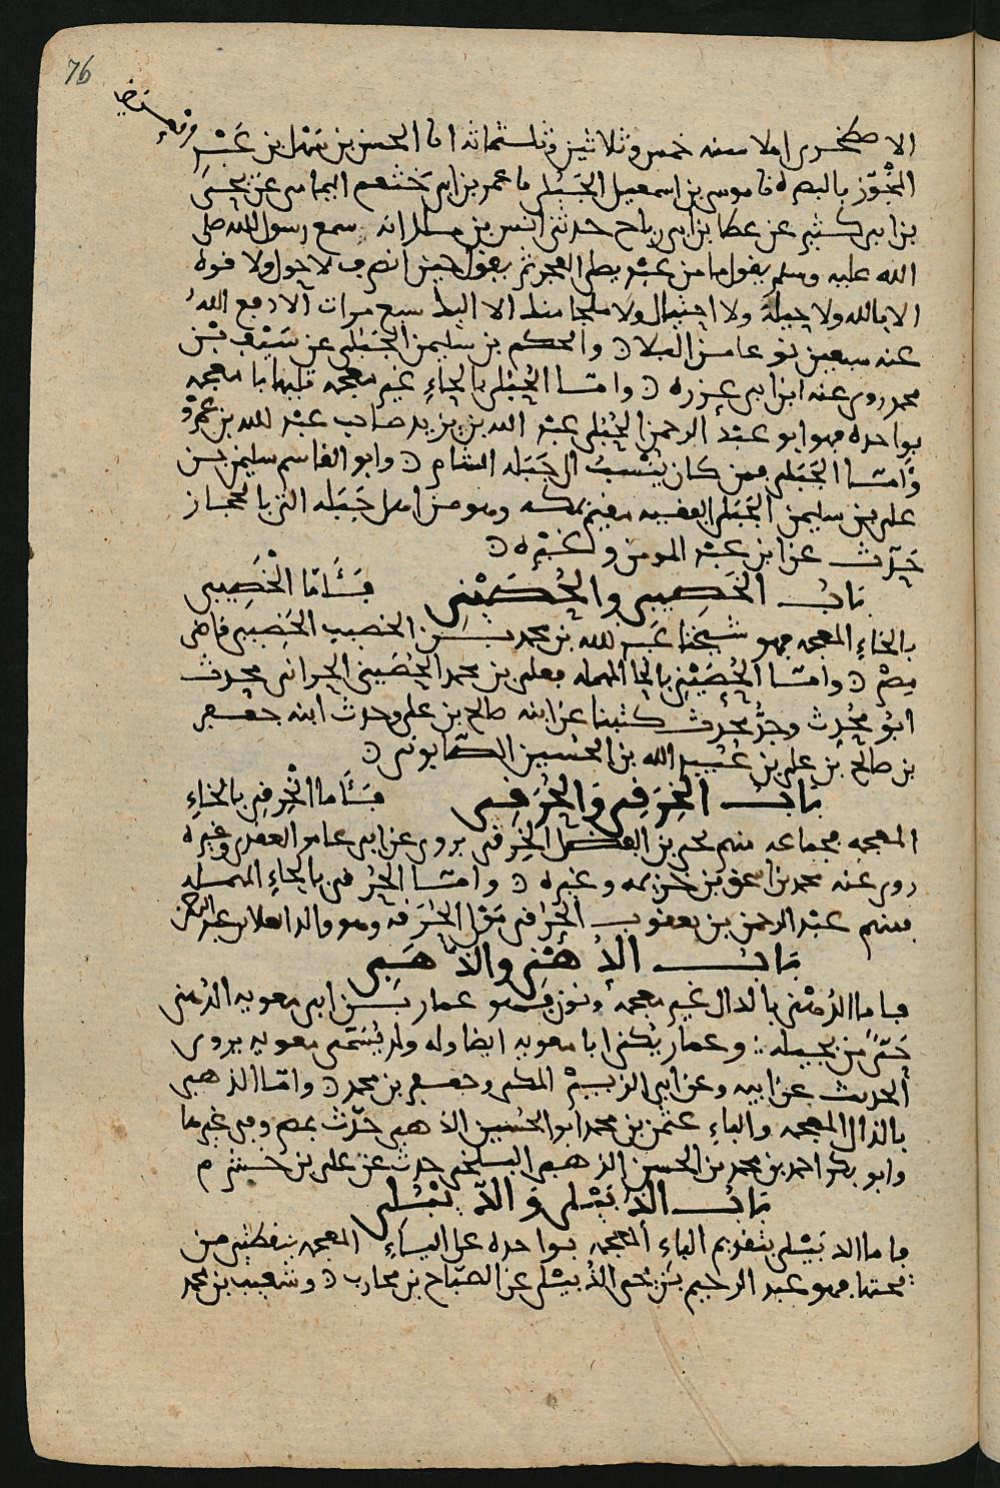 76
الاصطخري املا سنه خمس وثلاثين وثلثمائه انا الحسن بن سهل بن عبد
المجوّز بالبصره نا موسى بن اسمعيل الجَبُلى نا عمر بن ابي خثعم اليمامي عن يحيى
بن ابى كثير عن عطا بن ابى رباح حدثنى انس بن ملك انه سمع رسول الله صلى
الله عليه وسلم يقول ما من عبد يصلى الفجر ثم يقول حين انصرف لا حول ولا قوه
الا بالله ولا حيلة ولا احتيال ولا ملجا منك الا اليك سبع مرات الا دفع الله
عنه سبعين نوعا من البلا والحكم بن سليمن الجَبُلى عن سيف بن
محمد روى عنه ابن ابى غرزه وامّا الحُبُلى بالحاءِ غير معجمه قبلها با معجمه
بواحده فهو ابو عبد الرحمن الحُبُلى عبد الله بن يزيد صاحب عبد الله بن عمرو
وامّا الجَبَلى فمن كان يُنسبُ الى جَبَله الشام وابو القاسم سليمن بن
على بن سليمن الجَبَلى الفقيه مقيم بمكه وهو من اهل جَبَله التى بالحجاز
حَدّث عن ابن عبد المومن وغيره
بَابُ الخَصِيبى والحُصَيْنِى فَأَمّا الخَصِيبى
بالخاءِ المعجمه فهو شيخنا عبد الله بن محمد بن الخصيب الخَصِيبى قاضى
مِصْر وامّا الحُصَيْنِى بالحا المهمله فعلى بن محمد الحُصَيْنى الحرانى محدث
ابو محدث وجدُّ محدث كتبنا عن ابنه صالح بن على وحدث ابنه جعفر
بن صالح بن على بن عُبيد الله بن الحسين الصّابونى
بَابُ الخِرَقِى وَالحُرَقِى فَأَما الْخِرقِى بالخاءِ
المعجمه فجماعه منهم يحيى بن الفضل الخِرقى يروى عن ابى عامر العقدى وغيره
روى عنه محمد بن اسحق بن خزيمه وغيره وامّا الحُرقى بالحاءِ المهمله
فمنهم عبد الرحمن بن يعقوب الحُرَقى مَوْلى الحُرَقَه وهو والد العلاء بن عبد الرحمن
بَابُ الدُهْنِى والذّهَبِى
فاما الدُهْنى بالدال غير معجمه ونون فهو عمار بن ابى معويه الدُهنى
حَىٌّ من بجيله وعمار يُكنى ابا معويه ايضا وله ولد يُسَمّى معويه يروى
الحديث عن ابيه وعن ابى الزبير المكى وجعفر بن محمد وامّا الذهبى
بالذال المعجمه والباءِ عثمن بن محمد ابو الحُسين الذهبى حَدّث بمصر وفى غيرها
وابو بكر احمد بن محمد بن الحسن الذهبى البلخى حدث عن على بن خشرم
بَابُ الدُبَيْلى وَالدّيْبُلى
فاما الدبَيْلى بتقديم الباءِ المعجمه بواحده على الياءِ المعجمه بنقطتين من
تحتها فهو عبد الرحيم بن يحيى الدُبيْلى عن الصبّاح بن محارب وشعيب بن محمد